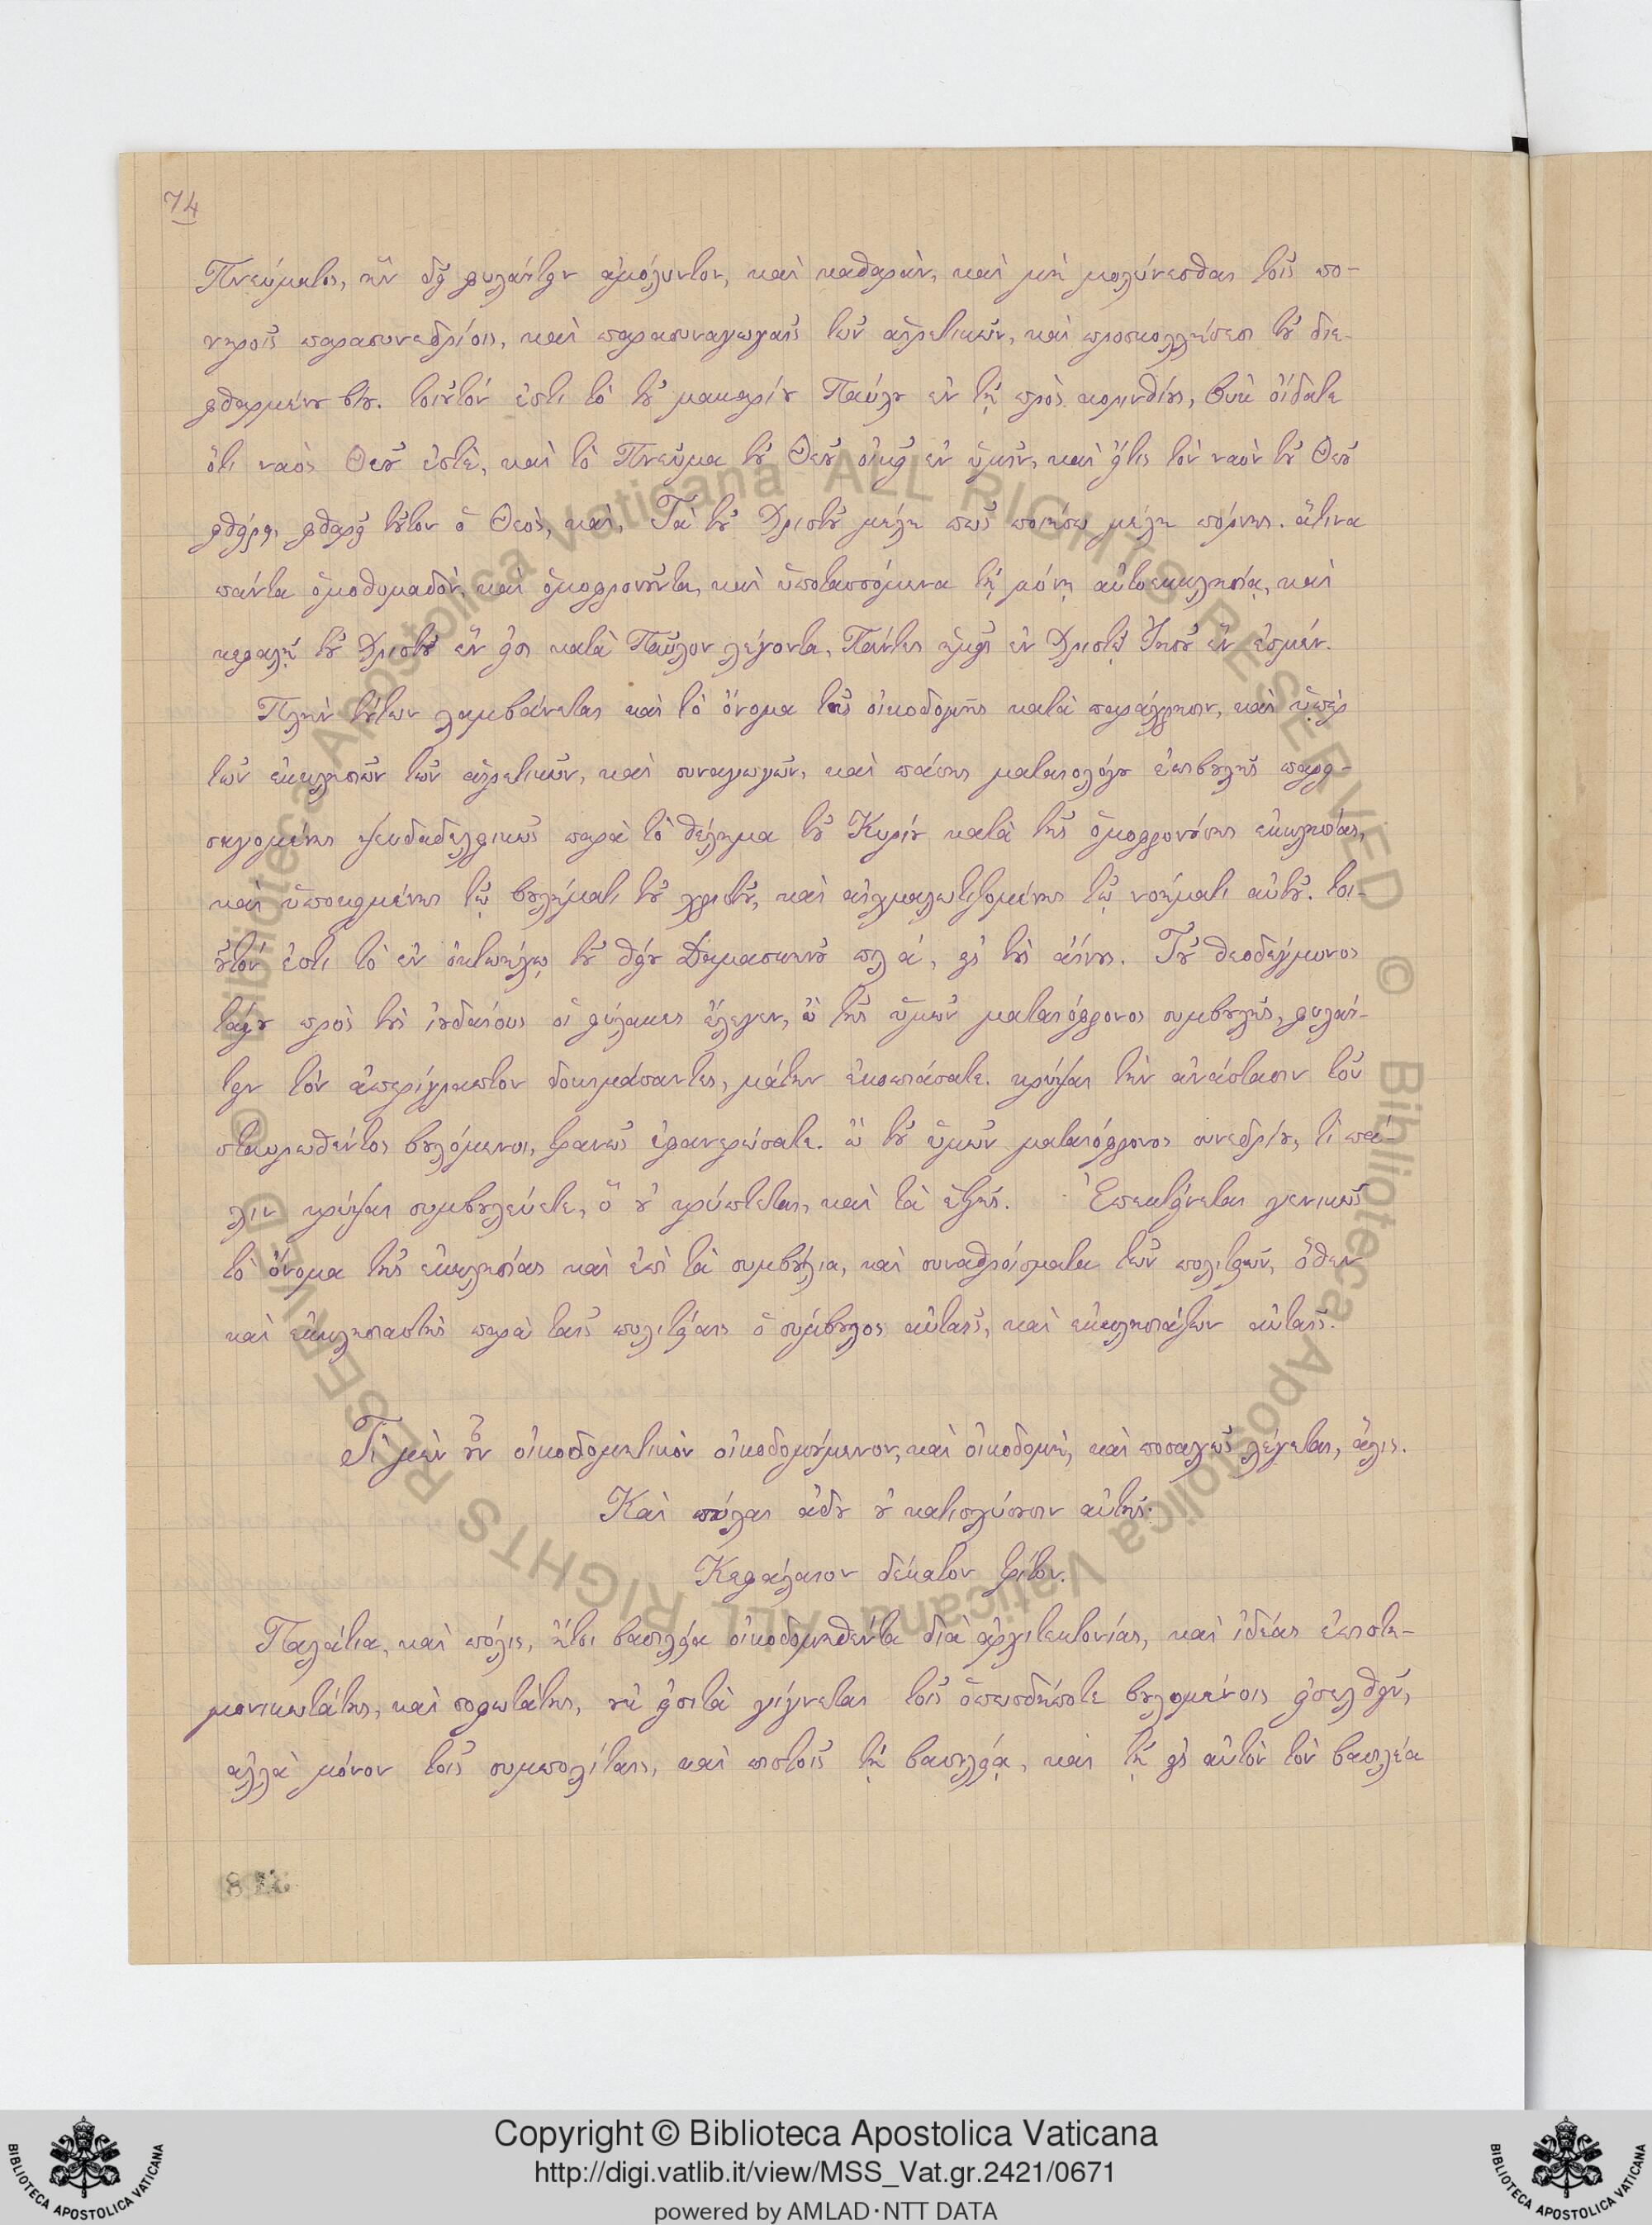 74
Πνεύματος, ἣν δεῖ φυλάττειν ἀμόλυντον, καὶ καθαρὰν, καὶ μὴ μολύνεσθαι τοῖς πο-
νηροῖς παρασυνεδρίοις, καὶ παρασυναγωγαῖς τῶν αἱρετικῶν, καὶ προσκολλήσεσι τοῦ διε-
φθαρμένου βίου. τοιοῦτόν ἐστι τὸ τοῦ μακαρίου Παύλου ἐν τῇ πρὸς κορινθίους, Οὐκ οἴδατε
ὅτι ναὸς Θεοῦ ἐστὲ, καὶ τὸ Πνεῦμα τοῦ Θεοῦ οἰκεῖ ἐν ὑμῖν, καὶ εἴτις τὸν ναὸν τοῦ Θεοῦ
φθείρει, φθαρεῖ τοῦτον ὁ Θεὸς, καὶ, Τὰ τοῦ Χριστοῦ μέλη πῶς ποιήσω μέλη πόρνης. ἅτινα
πάντα ὁμοθυμαδὸν, καὶ ὁμοφρονοῦντα, καὶ ὑποτασσόμενα τῇ μόνῃ αὐτοεκκλησίᾳ, καὶ
κεφαλῇ τοῦ Χριστοῦ ἓν εἰσι κατὰ Παῦλον λέγοντα, Πάντες ἡμεῖς ἐν Χριστῷ Ἰησοῦ ἓν ἐσμέν.
Πλὴν τούτων λαμβάνεται καὶ τὸ ὄνομα τῆς οἰκοδομῆς κατὰ παράχρησιν, καὶ ὑπὲρ
τῶν ἐκκλησιῶν τῶν αἱρετικῶν, καὶ συναγωγῶν, καὶ πάσης ματαιολόγου ἐπιβουλῆς παρει-
σαγομένης ψευδαδελφικῶς παρὰ τὸ θέλημα τοῦ Κυρίου κατὰ τῆς ὁμοφρονούσης ἐκκλησίας,
καὶ ὑποκειμένης τῷ βουλήματι τοῦ χριστοῦ, καὶ αἰχμαλωτιζομένης τῷ νοήματι αὐτοῦ. τοι-
οῦτόν ἐστι τὸ ἐν ὀκτωήχῳ τοῦ θείου Δαμασκηνοῦ πλ ά, εἰς τοὺς αἴνους. Τοῦ θεοδέγμονος
τάφου πρὸς τοὺς ἰουδαίους οἱ φύλακες ἔλεγον, ὢ τῆς ὑμῶν ματαιόφρονος συμβουλῆς, φυλάτ-
τειν τὸν ἀπερίγραπτον δοκιμάσαντες, μάτην ἐκοπιάσατε. κρύψαι τὴν ἀνάστασιν τοῦ
σταυρωθέντος βουλόμενοι, τρανῶς ἐφανερώσατε. ὢ τοῦ ὑμῶν ματαιόφρονος συνεδρίου, τί πά-
λιν κρύψαι συμβουλεύετε, ὃ οὐ κρύπτεται, καὶ τὰ ἑξῆς. Ἐπεκτείνεται γενικῶς
τὸ ὄνομα τῆς ἐκκλησίας καὶ ἐπὶ τὰ συμβούλια, καὶ συναθροίσματα τῶν πολιτειῶν, ὅθεν
καὶ ἐκκλησιαστὴς παρὰ ταῖς πολιτείαις ὁ σύμβουλος αὐταῖς, καὶ ἐκκλησιάζων αὐταῖς.
Τί μὲν οὖν οἰκοδομητικὸν οἰκοδομούμενον, καὶ οἰκοδομὴ, καὶ ποσαχῶς λέγεται, ἅλις.
Καὶ πύλαι ᾅδου οὐ κατισχύσουσιν αὐτῆς.
Κεφάλαιον δέκατον τρίτον.
Παλάτια, καὶ πόλις, ἤτοι βασιλεία οἰκοδομηθέντα διὰ ἀρχιτεκτονίας, καὶ ἰδέας ἐπιστη-
μονικωτάτης, καὶ σοφωτάτης, οὐκ εἰσιτὰ γίγνεται τοῖς ὁπωσδήποτε βουλομένοις εἰσελθεῖν,
ἀλλὰ μόνον τοῖς συμπολίταις, καὶ πιστοῖς τῇ βασιλείᾳ, καὶ τῇ εἰς αὐτὸν τὸν βασιλέα
Copyright © Biblioteca Apostolica Vaticana
http://digi.vatlib.it/view/MSS_Vat.gr.2421/0671
powered by AMLAD·NTT DATA